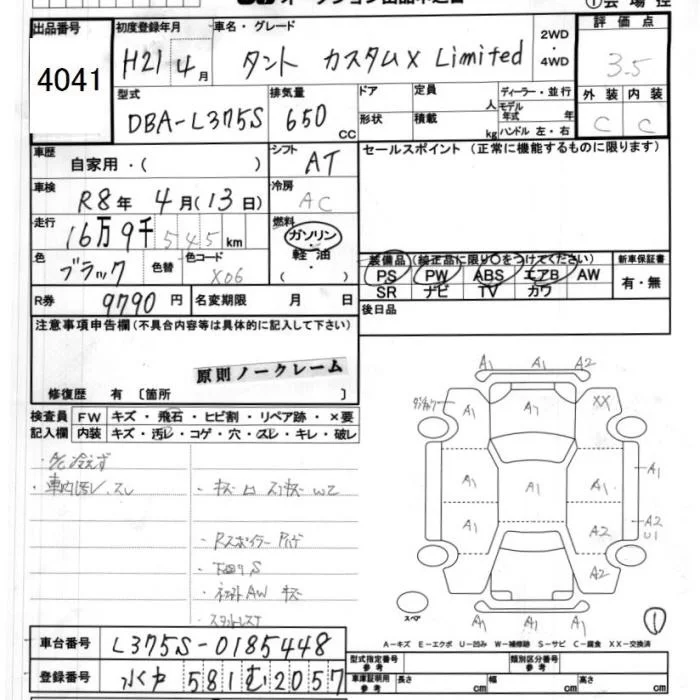 オークション出品申込書
出品番号 初度登録年月 車名・グレード 2WD・4WD 評価点
4041 H21 4月 タント カスタムX Limited 3.5
型式 排気量 ドア 定員 人 ディーラー・並行 外装 内装
DBA-L375S 650 CC 形状 積載 kg モデル年式 年 ハンドル 左・右 C C
車歴 自家用・( ) シフト AT セールスポイント(正常に機能するものに限ります)
車検 R8年 4月(13日) 冷房 AC
走行 16万9千545km 燃料 ガソリン 軽油 ・( )
色 ブラック 色替 色コード X06
装備品(純正品に限り〇をつけてください) 新車保証書
PS PW ABS エアB AW 有・無
SR ナビ TV カワ
R券 9790円 名変期限 月 日 後日品
注意事項申告欄(不具合内容等は具体的に記入して下さい)
原則ノークレーム
修復歴 有〔箇所 〕
検査員 FW キズ・飛石・ヒビ割・リペア跡・×要
記入欄 内装 キズ・汚レ・コゲ・穴・スレ・キレ・破レ
・A/C冷えず
・車内汚レ、スレ
・Rスポイラー
・下回りS
A1 A1 A2
A1 A7 XX
A1 A1 A1 A1
A1 A2 A2 U1
A2
A1 A1 A1
スペア
①
A-キズ E-エクボ U-凹み W-補修跡 S-サビ C-腐食 XX-交換済
車台番号 L375S-0185448
登録番号 水戸 581 む 2057
型式指定番号 参考 類別区分番号 参考
車庫証明用 参考 長さ cm 幅 cm 高さ cm